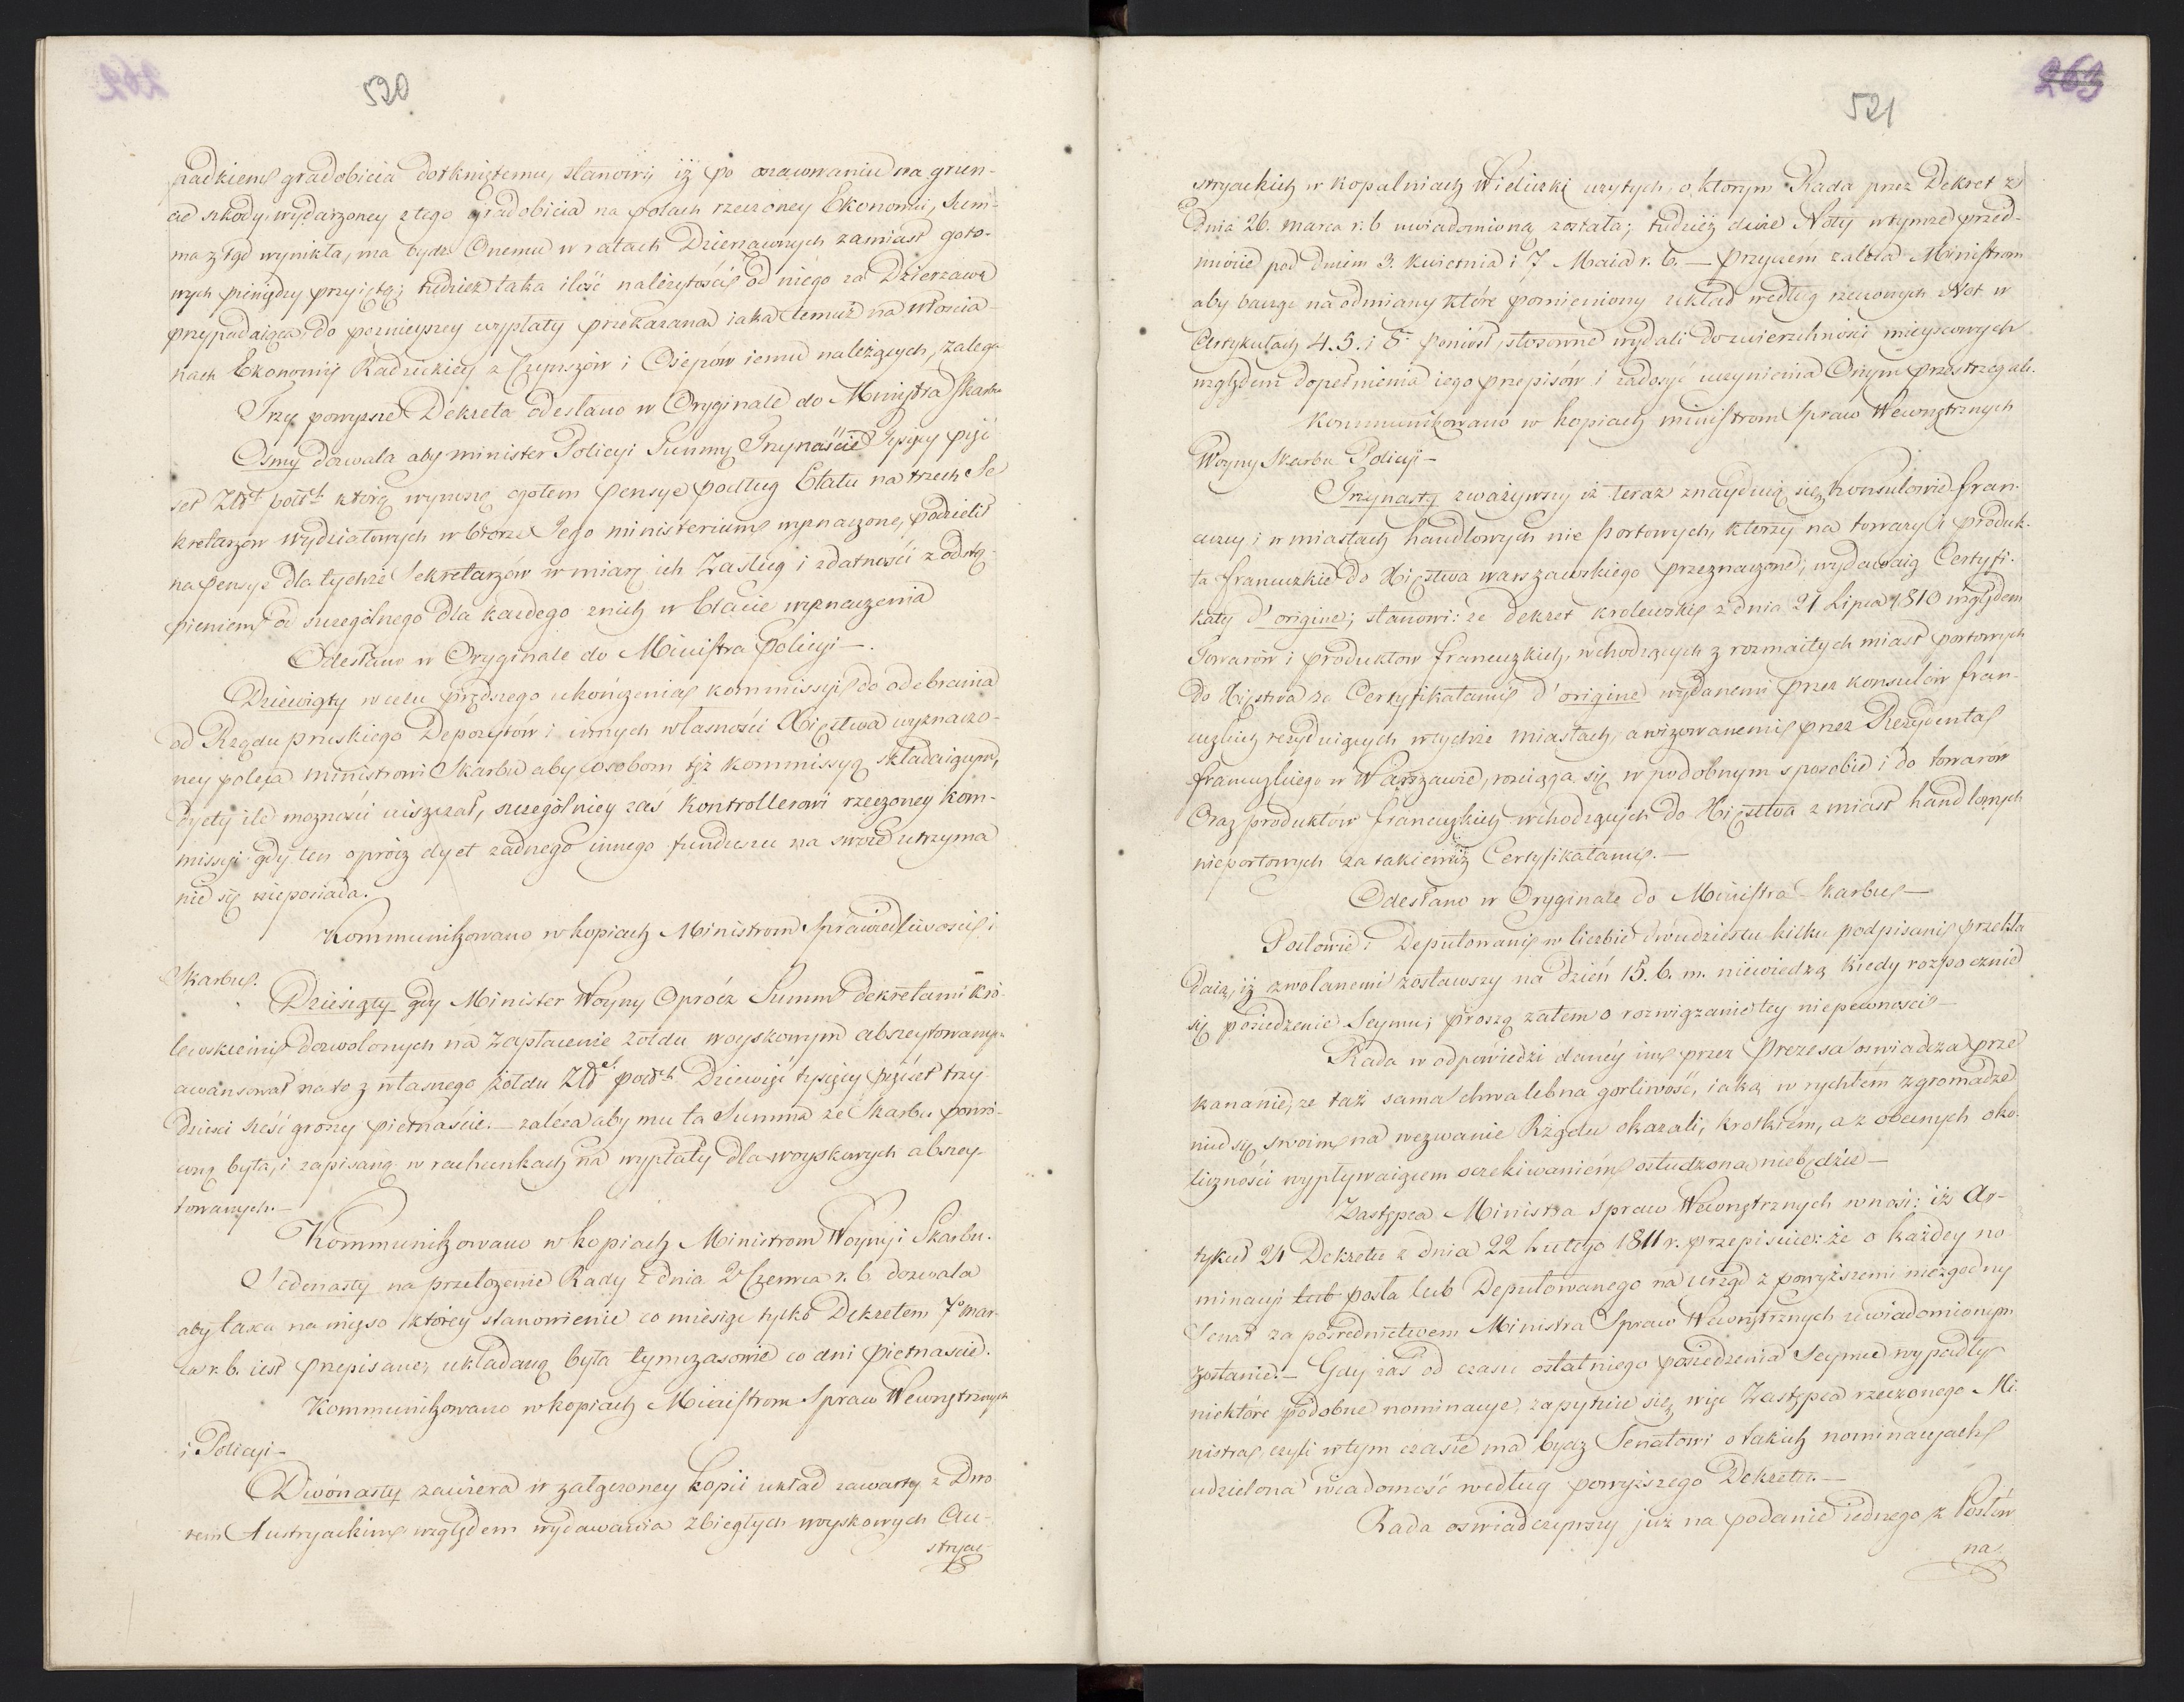 520
padkiem gradobicia dotkniętemu, stanowi iż po oszacowaniu na grun-
cie szkody, wydarzoney z tego gradobicia na polach rzeczoney Ekonomii, Sum-
ma ztąd wynikła, ma bydź Onemu w ratach Dzierżawnych zamiast goto-
wych pieniędzy przyiętą; tudzież taka ilość należytości od niego za Dzierzawę
przypadaiąca, do poznieyszey wypłaty przekazana iaka temuż na włościa-
nach Ekonomij Radzickiey z Czynszów i Osepów iemu należących, zalega
Trzy powyzsze Dekreta odesłano w Oryginale do Ministra Skarbu
Osmy dozwala aby minister Policyi Summy Trzynaście Tysięcy pięć
set Złt polsk. którą wynoszą ogółem pensye podług Etatu na trzech Se
kretarzów Wydziałowych w biorze Jego ministerium wyznaczone, podzielił
na pensye dla tychże Sekretarzów w miarę ich Zasług i zdatności z odstą-
pieniem od szczególnego dla każdego z nich w Etacie wyznaczenia
Odesłano w Oryginale do Ministra Policyi —.
Dziewiąty w celu prędszego ukończenia kommissyi do odebrania
od Rządu pruskiego Depozytów i innych własności Xięstwa wyznaczo-
ney poleca ministrowi Skarbu aby osobom tęż kommissyą składaiącym,
dyety ile mozności uiszczał, szczególniey zaś Kontrollerowi rzeczoney kom-
missyi gdy ten oprócz dyet zadnego innego funduszu na swoie utrzyma
nie się nieposiada.
Kommunikowano w kopiach Ministrom Sprawiedliwości i
Skarbu.
Dziesiąty gdy Minister Woyny Oprócz Summ dekretami kró-
lewskiemi dozwolonych na Zapłacenie żołdu woyskowym abszeytowanym
awansował na to z własnego żołdu Złt polsk. Dziewięć tysięcy pięćset trzy-
dzieści sześć groszy pietnaście. — zaleca aby mu ta Summa ze Skarbu powró-
coną była, i zapisaną w rachunkach na wypłaty dla woyskowych abszey-
towanych. —
Kommunikowano w kopiach Ministrom Woyny i Skarbu.
Jedenasty na przełożenie Rady z dnia 2 Czerwca r. b. dozwala
aby taxa na mięso którey stanowienie co miesiąc tylko Dekretem 7º mar-
ca r. b. iest przepisane, układaną była tymczasowie co dni pietnaście.
Kommunikowano w kopiach Ministrom Spraw Wewnętrznych
i Policyi —
Dwónasty zawiera w załączoney kopii układ zawarty z Dwo
rem Austryackim względem wydawania zbiegłych woyskowych Au-
stryac-
263
521
stryackich w kopalniach Wieliczki użytych, o którym Rada przez Dekret z
dnia 26. marca r. b uwiadomioną została; tudzież dwie Noty w tymże przed-
miocie pod dniem 3. kwietnia i 7 Maia r. b. — Przyczem zaleca Ministrom
aby bacząc na odmiany które pomieniony układ według rzeczonych Not w
Artykułach 4. 5. i 8 poniósł, stosowne wydali do zwierzchności mieyscowych
względem dopełnienia iego przepisów i zadosyć uczynienia Onym przestrzegali.
Kommunikowano w kopiach ministrom Spraw Wewnętrznych
Woyny Skarbu Policyi —
Trzynasty zważywszy iż teraz znayduią się konsulowie fran-
cuzcy i w miastach handlowych nie portowych, którzy na towary i produk-
ta francuzkie do Xięstwa warszawskiego przeznaczone, wydawaią Certyfi-
katy d'origine; stanowi: że dekret krolewski z dnia 21 Lipca 1810 względem
Towarów i produktow francuzkich, wchodzących z rozmaitych miast portowych
do Xięstwa za Certyfikatami d'origine wydanemi przez konsulów fran-
cuzkich rezyduiących w tychże miastach, a wizowanemi przez Rezydenta
francuzkiego w Warszawie, rozciąga się w podobnym sposobie i do towarów
Oraz produktów francuzkich wchodzących do Xięstwa z miast handlowych
nieportowych za takiemiż Certyfikatami. —
Odesłano w Oryginale do Ministra Skarbu —
Posłowie i Deputowani w liczbie dwudziestu kilku podpisani przekła
daią, iż zwołanemi zostawszy na dzień 15. b. m. niewiedzą kiedy rozpocznie
się posiedzenie Seymu; proszą zatem o rozwiązanie tey niepewności —
Rada w odpowiedzi daney im przez Prezesa oswiadcza prze
konanie, ze taż sama chwalebna gorliwość, iaką w rychłem zgromadze
niu się swoim na wezwanie Rządu okazali, krotkiem, a z obecnych oko-
liczności wypływaiącem oczekiwaniem ostudzona niebędzie —
Zastępca Ministra Spraw Wewnętrznych wnosi: iż Ar-
tykuł 24 Dekretu z dnia 22 Lutego 1811 r. przepisuie: że o każdey no
minacyi lub posła lub Deputowanego na urząd z powyższemi niezgodny
Senat za pośrednictwem Ministra Spraw Wewnętrznych uwiadomionym
zostanie. — Gdy zaś od czasu ostatniego posiedzenia Seymu wypadły
niektóre podobne nominacye, zapytuie się więc Zastępca rzeczonego Mi-
nistra, czyli w tym czasie ma bydź Senatowi o takich nominacyach
udzielona wiadomość według powyższego Dekretu. —
Rada oswiadczywszy już na podanie iednego z Posłów
na